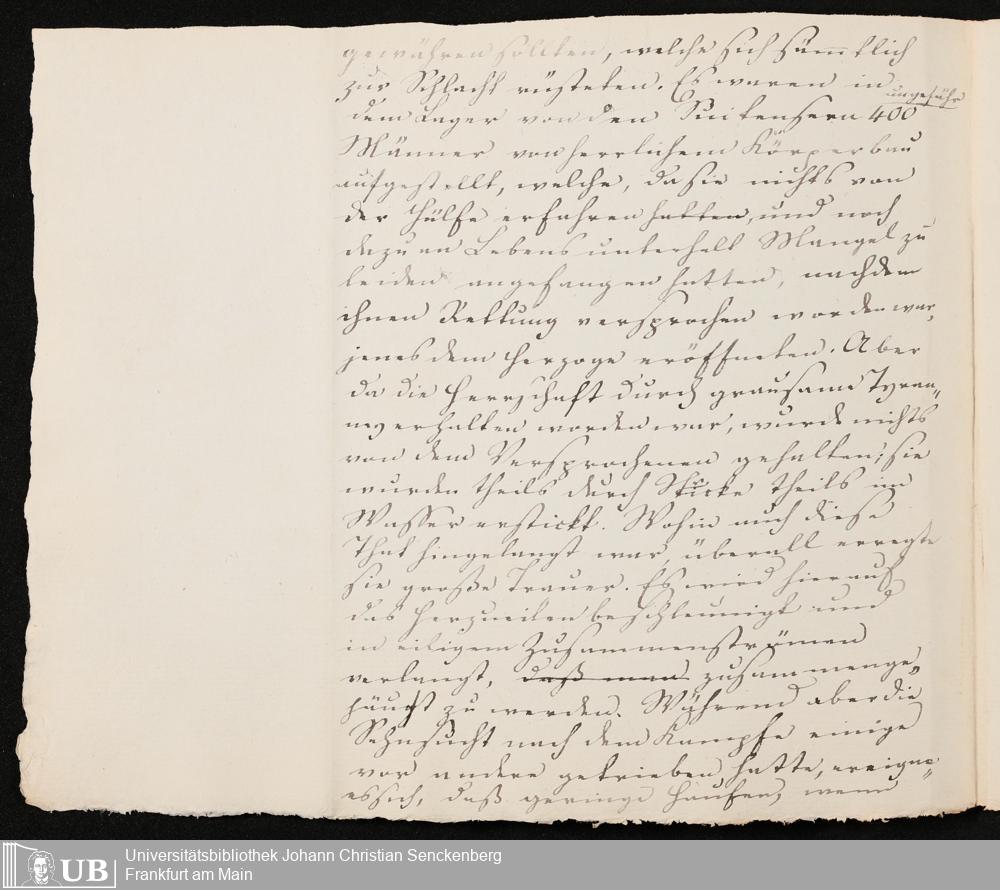 gewähren sollten, welche sich sämtlich
zur Schlacht rüsteten. Es waren in
ungefähr
dem Lager von den Suitensern 400
Männer von herrlichem Körperbau
aufgestellt, welche, da sie nichts von
der Hülfe erfahren hatten, und noch
dazu an Lebensunterhalt Mangel zu
leiden angefangen hatten, nachdem
ihnen Rettung versprochen worden war,
jenes dem Herzoge eröffneten. Aber
da die Herrschaft durch grausame Tyran„
ney erhalten worden war, wurde nichts
von dem Versprochenen gehalten; sie
wurden theils durch Stricke theils im
Wasser erstickt. Wohin auch diese
That hingelangt war, überall erregte
sie große Trauer. Es wird hierauf
das Herzueilen beschleunigt und
in eiligem Zusammenströmen
verlangt, daß man zusammenge„
häuft zu werden. Während aber die
Sehnsucht nach dem Kampfe einige
vor andere getrieben hatte, ereigne„
es sich, daß geringe Haufen, wenn
Universitätsbibliothek Johann Christian Senckenberg
Frankfurt am Main
UB